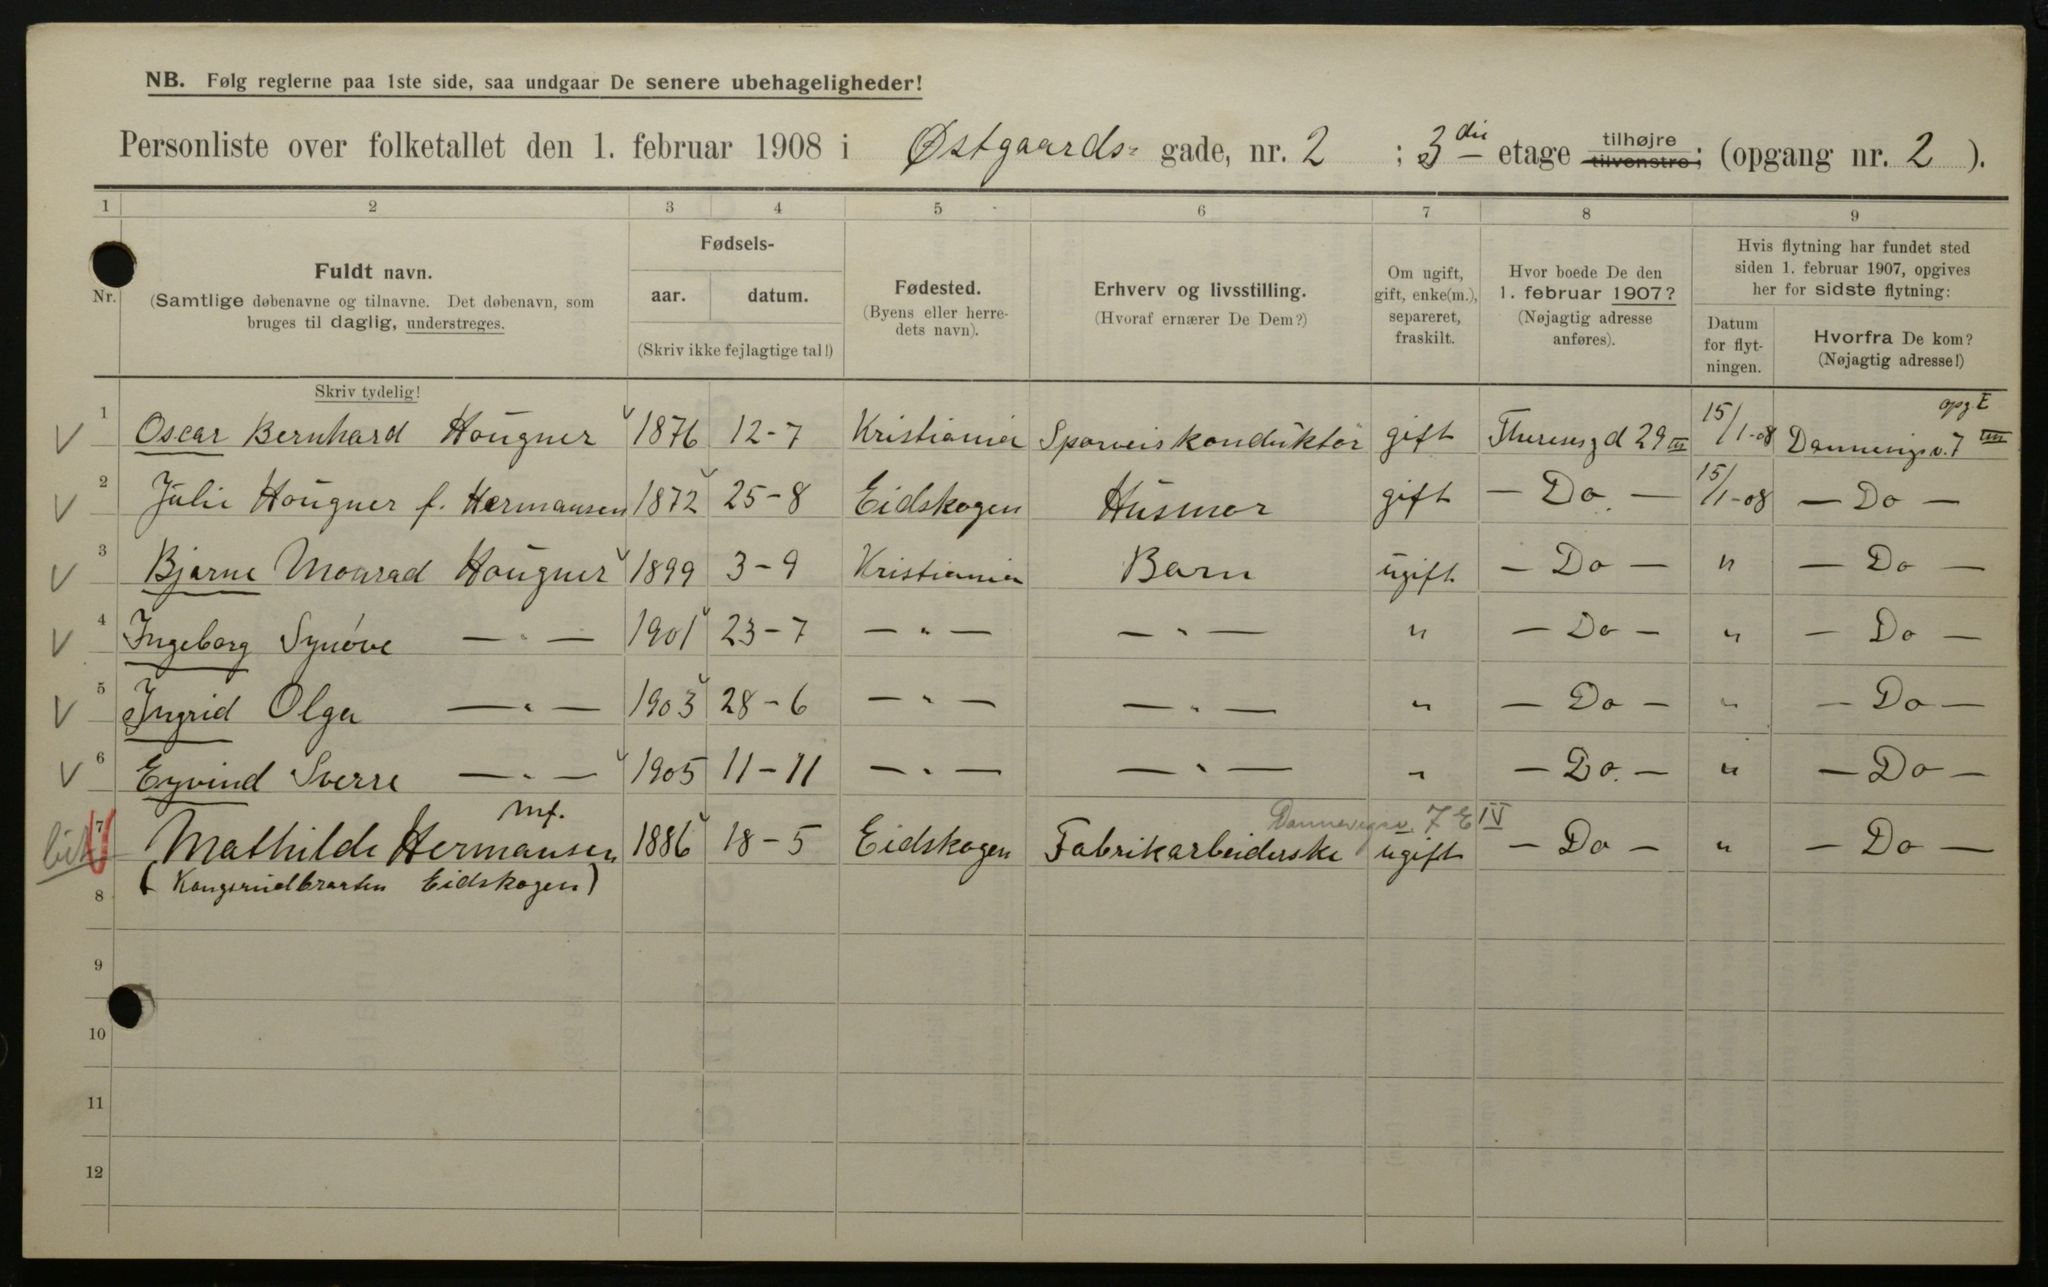 NB. Følg reglerne paa 1ste side, saa undgaar De senere ubehageligheder!
Personliste over folketallet den 1. februar 1908 i Østgaards- gade, nr. 2 ; 3 die etage tilhøjre tilvenstre; (opgang nr. 2 ).
1 2 3 4 5 6 7 8 9
Nr.
Fuldt navn.
(Samtlige døbenavne og tilnavne. Det døbenavn, som
bruges til daglig, understreges.
Skriv tydelig!
Fødsels-
aar. datum.
(Skriv ikke fejlagtige tal!)
Fødested.
(Byens eller herre-
dets navn).
Erhverv og livsstilling.
(Hvoraf ernærer De Dem?)
Om ugift,
gift, enke(m.),
separeret,
fraskilt.
Hvor boede De den
1. februar 1907?
(Nøjagtig adresse
anføres).
Hvis flytning har fundet sted
siden 1. februar 1907, opgives
her for sidste flytning:
Datum
for flyt-
ningen.
Hvorfra De kom?
(Nøjagtig adresse!)
1 Oscar Bernhard Hougner 1876 12-7 Kristiania Sporveiskonduktør gift Theresesgd 29 III 15/1-08 Dannevigsv. 7 opg E IIII
2 Julie Hougner f. Hermansen 1872 25-8 Eidskogen Husmor gift — Do — 15/1-08 — Do —
3 Bjarne Monrad Hougner 1899 3-9 Kristiania Barn ugift — Do — " — Do —
4 Ingeborg Synöve — " — 1901 23-7 — " — — " — " — Do — " — Do —
5 Ingrid Olga — " — 1903 28-6 — " — — " — " — Do — " — Do —
6 Eyvind Sverre — " — 1905 11-11 — " — — " — " — Do — " — Do —
mf. Dannevigsv. 7 E IV
7 Mathilde Hermansen 1886 18-5 Eidskogen Fabrikarbeiderske ugift — Do — " — Do —
8 ( Eidskogen)
9
10
11
12